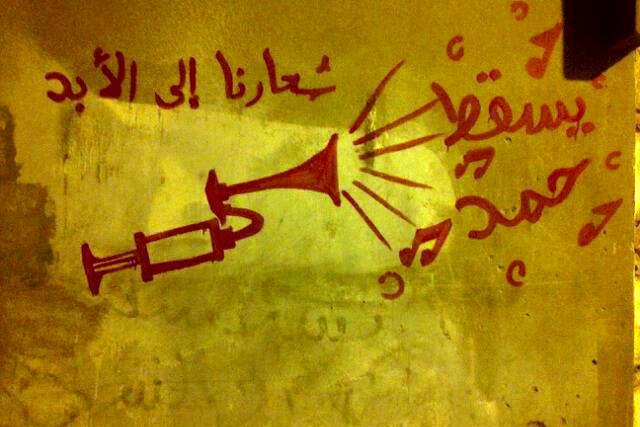 شعارنا إلى الأبد
يسقط
حمد